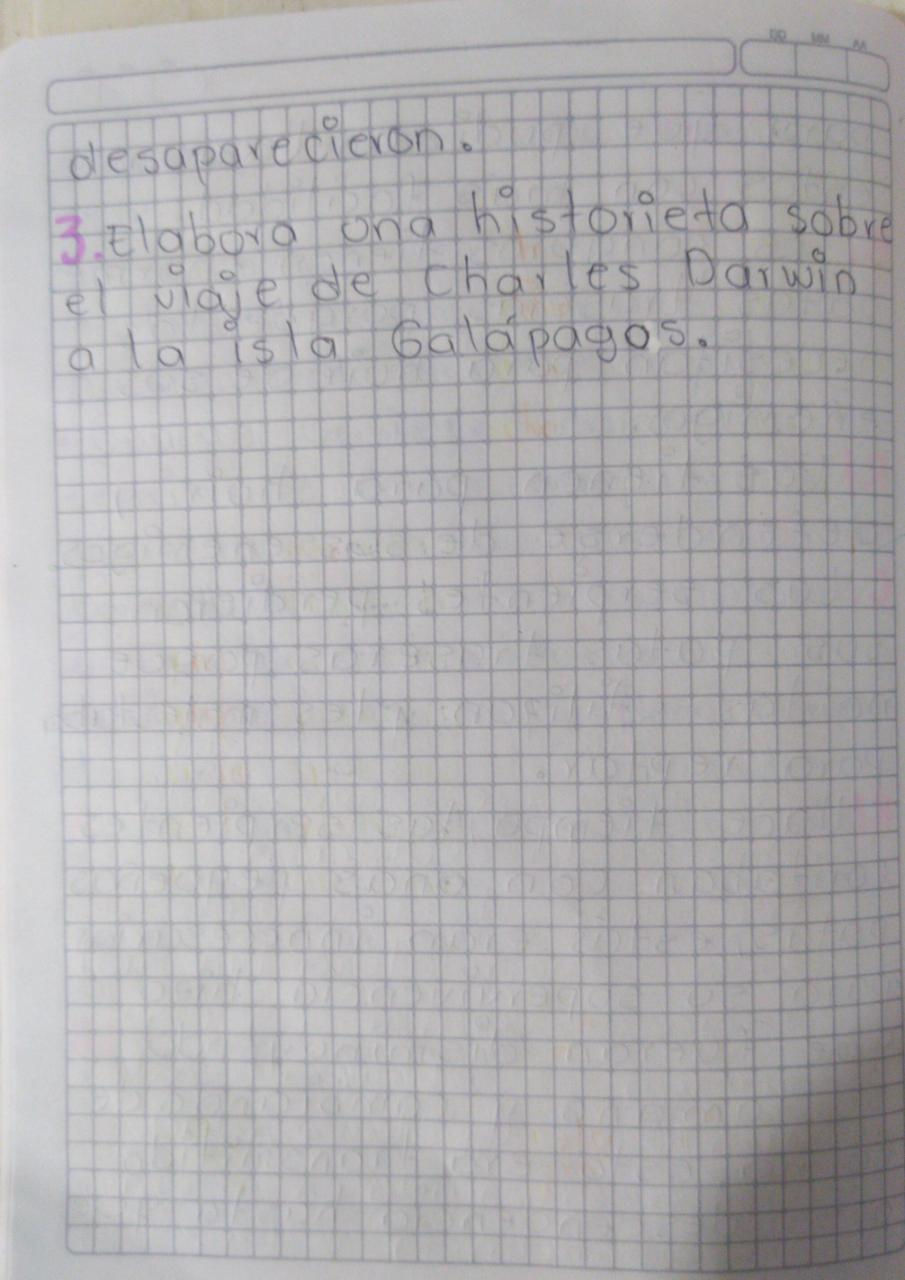 DD MM AA
desaparecieron.
3. Elabora una historieta sobre
el viaje de Charles Darwin
a la isla Galápagos.